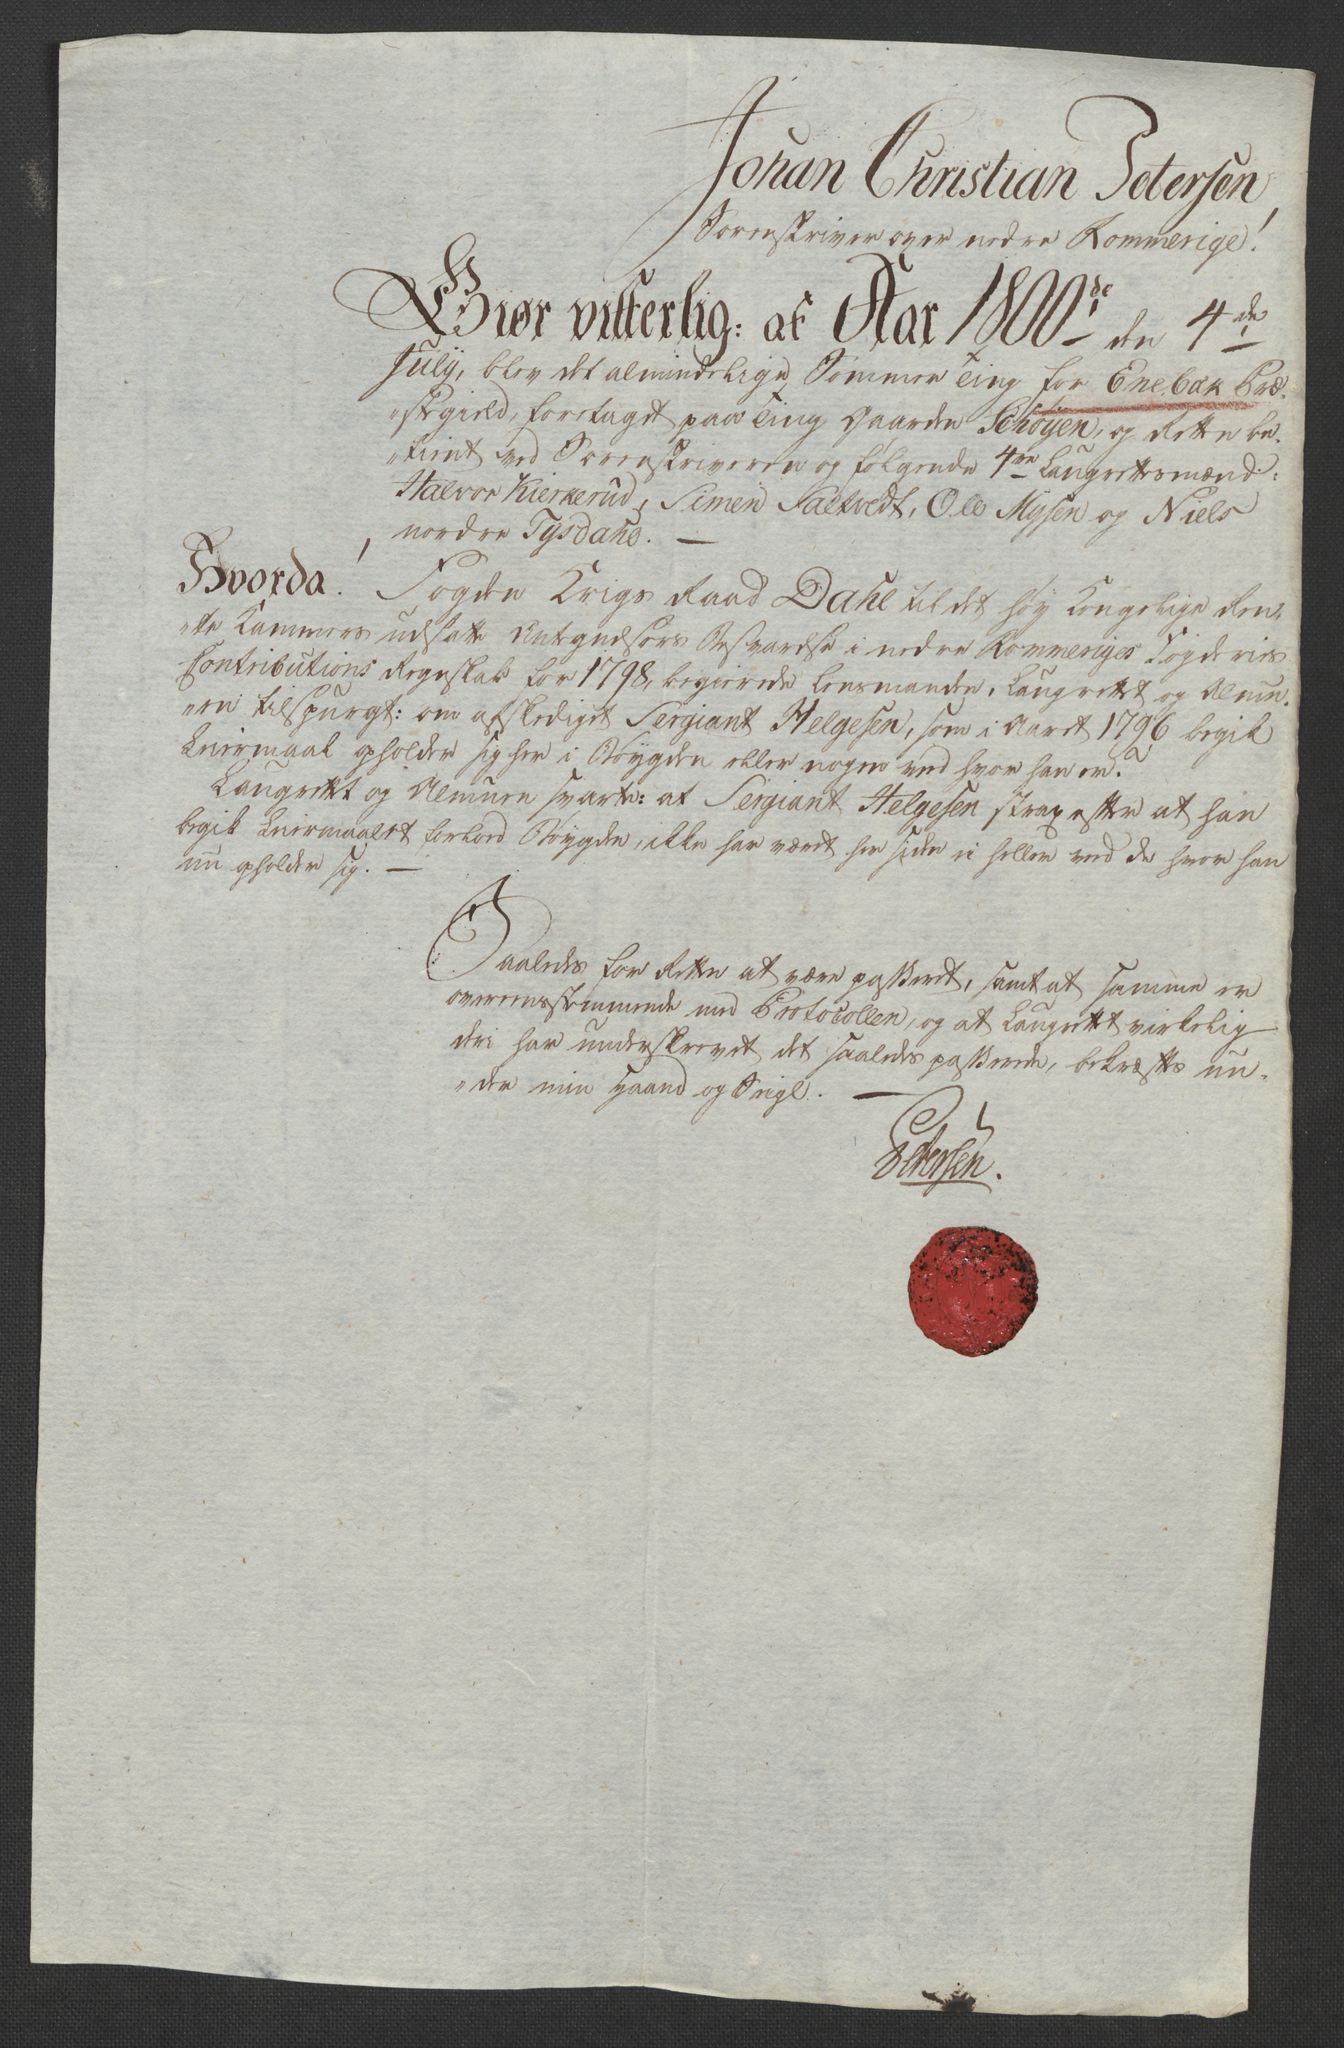 Johan Christian Petersen,
Sorenskriver over nedre Rommerige!
Giør vitterlig: at Aar 1800de den 4de
July, blev det almindelige Sommer Ting for Enebak Præ-
„stegield, foretaget paa Ting Gaarden Schøyen, og Retten be-
„tient ved Sorenskriveren og følgende 4re Laugrettesmænd:
Halvor Kierkerud, Simen Saltvedt, Ole Mysen og Niels
nordre Tysdahl. —
Hvorda! Fogden Krigs Raad Dahl til det høy Kongelige Ren-
„te Kammers udsatte Antegnelsers Besvarelse i nedre Rommeriges Fogderies
Contributions Regnskab for 1798, begierede Lensmanden, Laugrettet og Almu-
„en tilspurgt: om afskediget Sergiant Helgesen, som i Aaret 1796 begik
Leiermaal opholder sig her i Bøygden eller nogen ved hvor han er?
Laugrettet og Almuen svarte: at Sergiant Helgesen strax efter at han
begik Leiermaalet forlod Bøygden, ikke har været her siden ei heller ved de hvor han
nu opholder sig. —
Saaledes for Retten at være passeret, samt at samme er
overeensstemmende med Protocollen, og at Laugrettet virkelig
deri har underskrevet det saaledes passerede, bekræftes un-
„der min Haand og Seigl. —
Petersen.